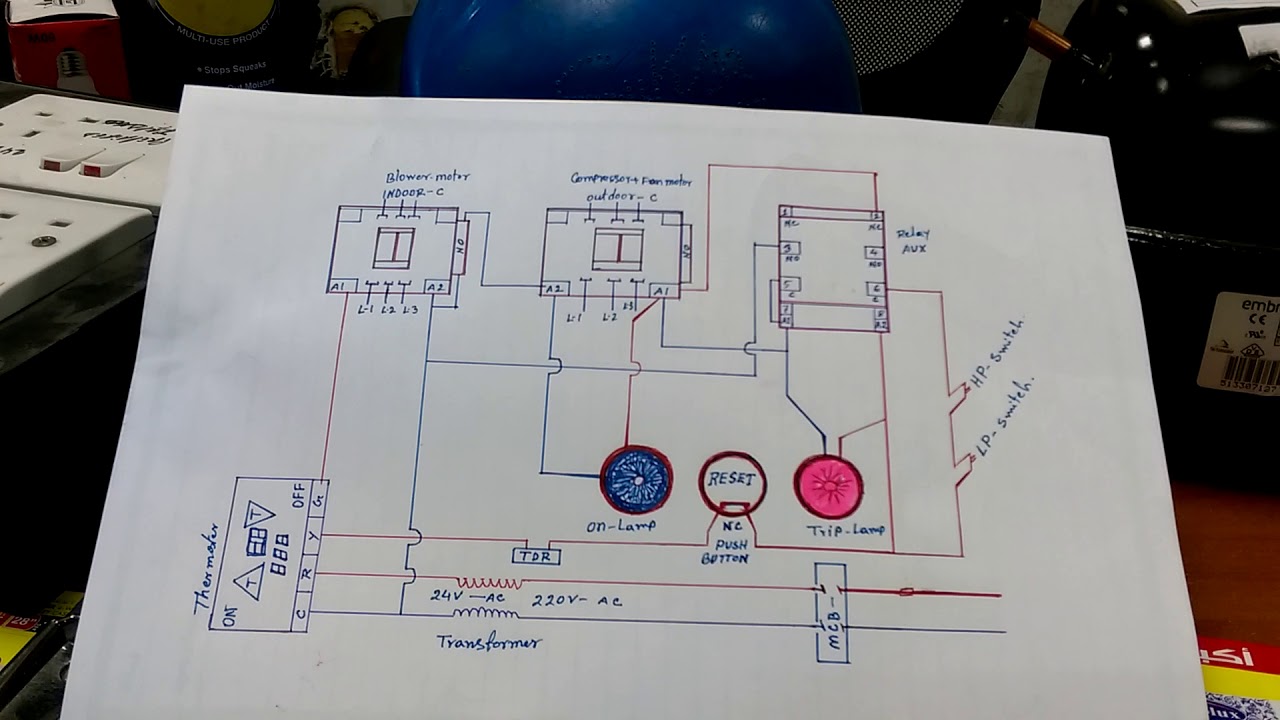 MULTI-USE PRODUCT
• Stops Squeaks
Out Moisture
Blower motor
INDOOR-C
Compressor+Fan motor
outdoor-C
NO
A1
L-1
L-2
L-3
A2
NO
A2
L-1
L-2
L3
A1
1
NC
2
NC
3
NO
4
NO
5
C
6
C
7
A1
8
A2
Relay
AUX
HP-Switch.
LP-Switch.
Thermometer
ON
OFF
T
T
G
Y
R
C
On-Lamp
RESET
NC
PUSH
BUTTON
Trip-Lamp
TDR
24V-AC
220V-AC
Transformer
MCB-
embr
CE